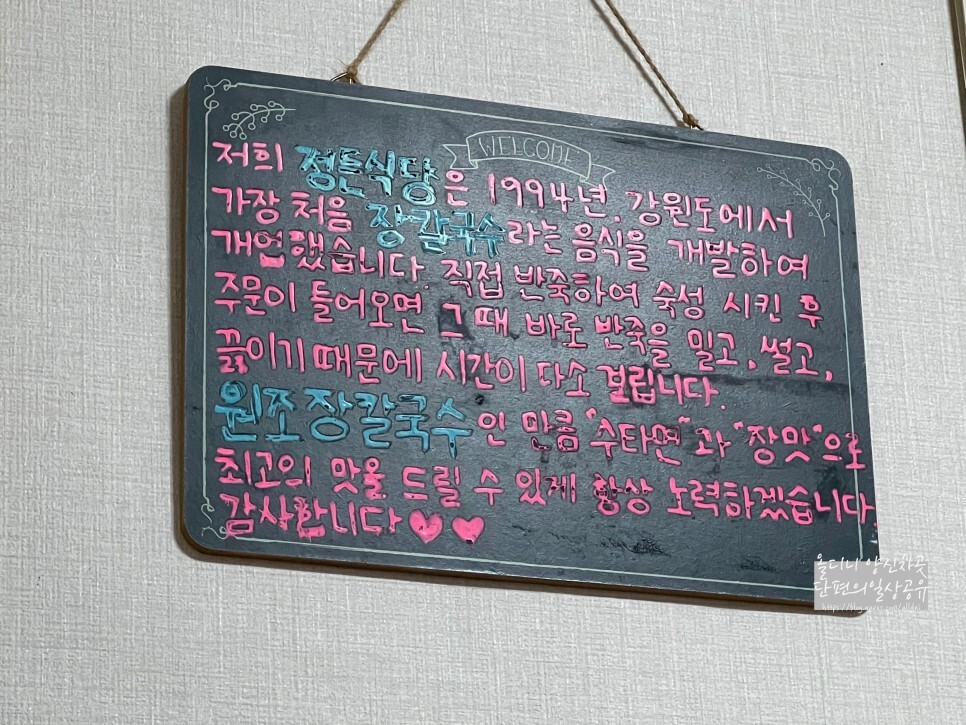 WELCOME
저희 정든식당은 1994년. 강원도에서
가장 처음 장칼국수라는 음식을 개발하여
개업했습니다. 직접 반죽하여 숙성 시킨 후
주문이 들어오면 그때 바로 반죽을 밀고, 썰고,
끓이기 때문에 시간이 다소 걸립니다.
원조장칼국수인 만큼 "수타면"과 "장맛"으로
최고의 맛을 드릴 수 있게 항상 노력하겠습니다.
감사합니다♥♥
단편의일상공유